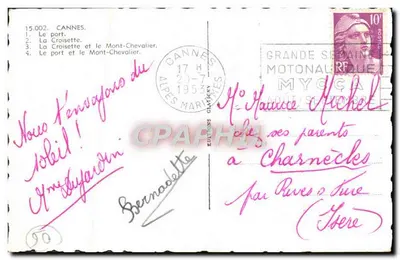 15.002. CANNES.
1. Le port.
2. La Croisette.
3. La Croisette et le Mont-Chevalier.
4. Le port et le Mont-Chevalier.
CANNES
17 H
1953
ALPES MARITIMES
GRANDE SEMAINE
MOTONAUTIQUE
MYCCA
10F
Nous t'envoyons du
soleil!
Mme Dujardin
Bernadette
Mr Maurice Michel
chez ses parents
à Charnècles
par Rives s/ Fure
(Isère)